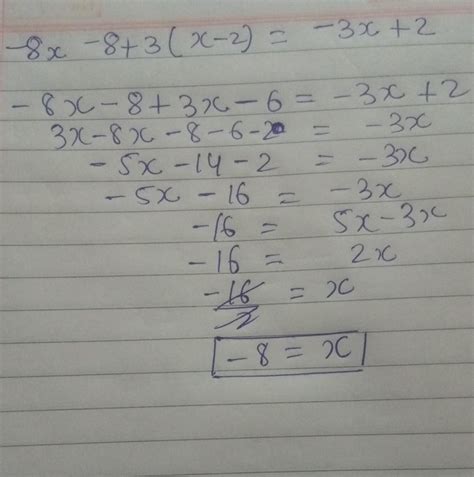 -8x -8+3(x-2) = -3x+2
-8x-8+3x-6 = -3x+2
3x-8x-8-6-2 = -3x
-5x-14-2 = -3x
-5x-16 = -3x
-16 = 5x-3x
-16 = 2x
-16/2 = x
-8 = x